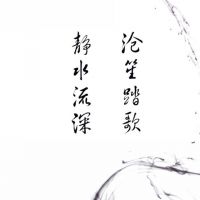 静水流深
沧笙踏歌